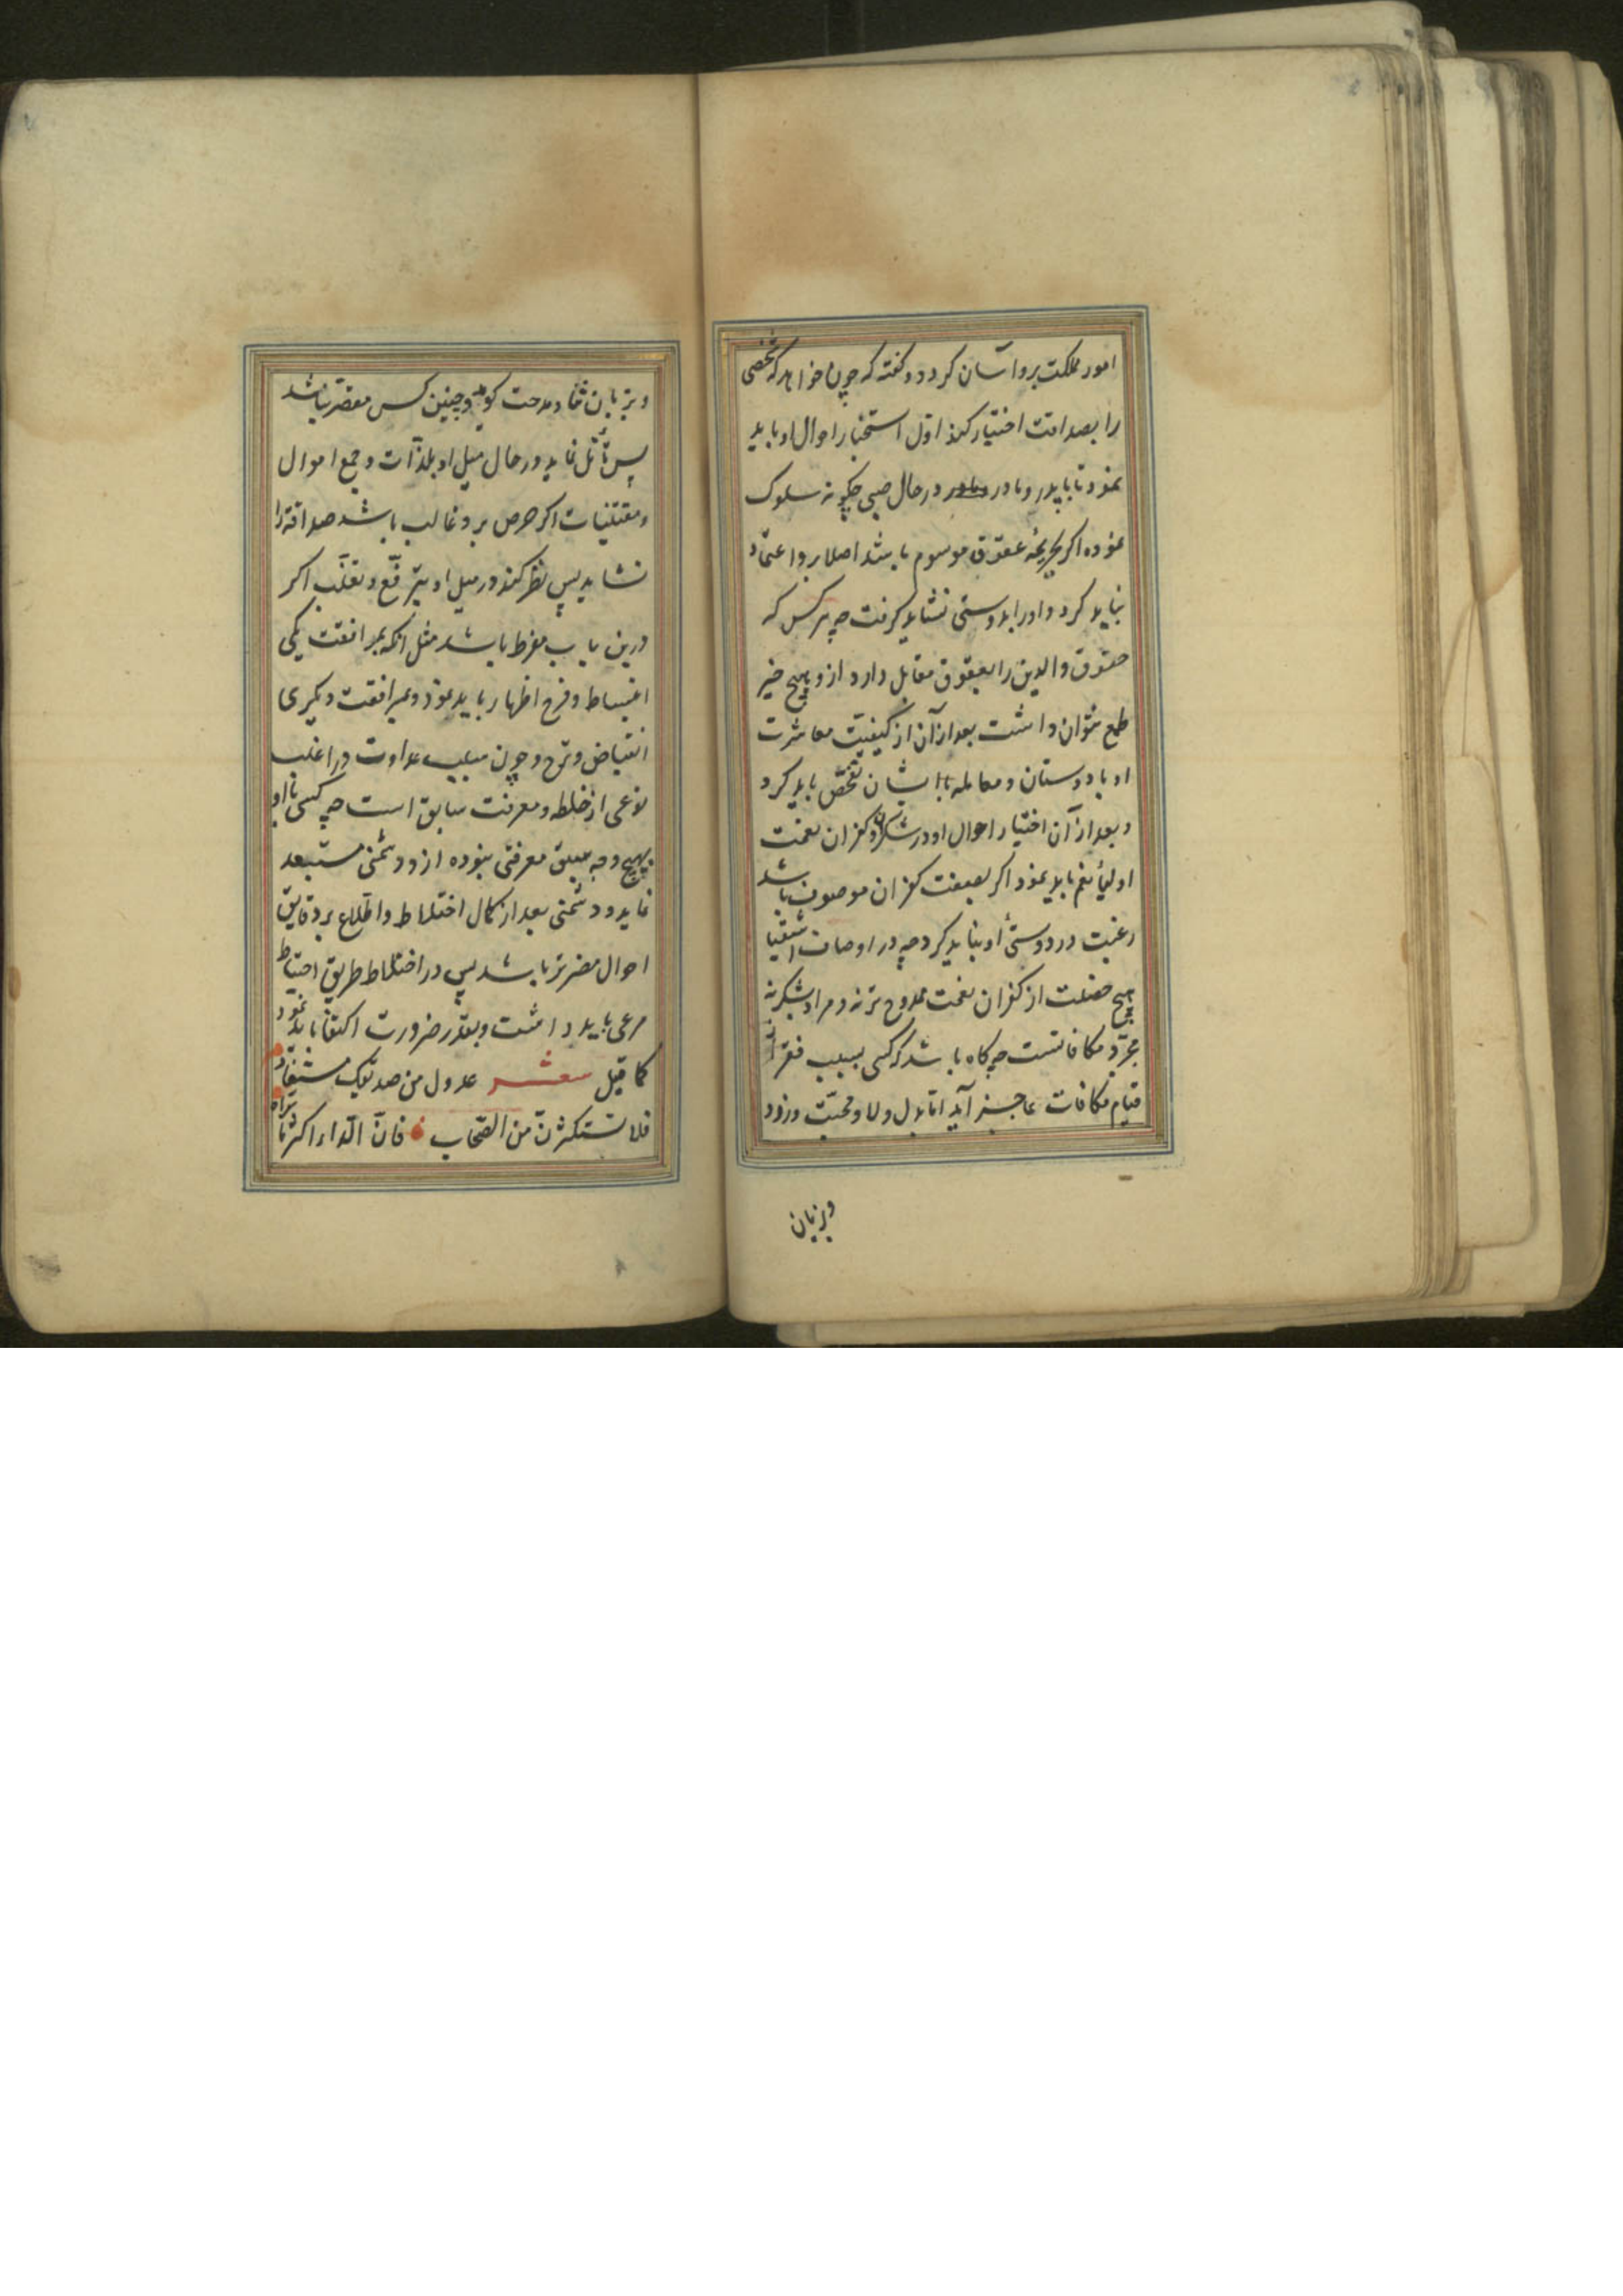 امور مملکت برو آسان کردد و کفته که چون خواهد که شخصی
را بصداقت اختیار کند اوّل استخبار احوال او باید
نمود تا با پدر و مادر در حال صبی چکونه سلوک
نموده اکر بجریمهٔ عقوق موسوم باشد اصلا برو اعتماد
نباید کرد و او را بدوستی نشاید کرفت چه هر کس که
حقوق والدین را بعقوق مقابل دارد ازو هیچ خیر
طمع نتوان داشت بعد از آن از کیفیّت معاشرت
او با دوستان و معامله با ایشان تفحّص باید کرد
و بعد از آن اختیار احوال او در شکر و کفران نعمت
اولیأ نعم باید نمود اکر بصفت کفران موصوف باشد
رغبت در دوستیٔ او نباید کرد چه در اوصاف اشقیا
هیچ خصلت از کفران نعمت مذموم تر نه و مراد بشکر نه
مجرّد مکافاتست چه کاه باشد که کسی بسبب فقر از
قیام مکافات عاجز آید امّا بدل ولا و محبّت ورزد
و بزبان
و بزبان ثنا و مدحت کوید و چنین کس مقصّر نباشد
پس تأمّل نماید در حال میل او بلذّات و جمع اموال
و مقتنیات اکر حرص برو غالب باشد صداقة را
نشاید پس نظر کند در میل او بترفّع و تغلّب اکر
درین باب مفرط باشد مثل انکه بمرافقت یکی
انبساط و فرح اظهار باید نمود و بمرافقت دیکری
انقباض و ترح و چون سبب عداوت در اغلب
نوعی از خلطه و معرفت سابق است چه کسی با او
بهیچ وجه سبق معرفتی نبوده ازو دشمنی مستبعد
نماید و دشمنی بعد از کمال اختلاط و اطّلاع بر دقایق
احوال مضرتر باشد پس در اختلاط طریق احتیاط
مرعی باید داشت و بقدر ضرورت اکتفا باید نمود
کما قیل شعر عدوک من صدیقک مستفاد
فلا تستکثرنّ من الصّحاب فانّ الدّاء اکثر ما تراه